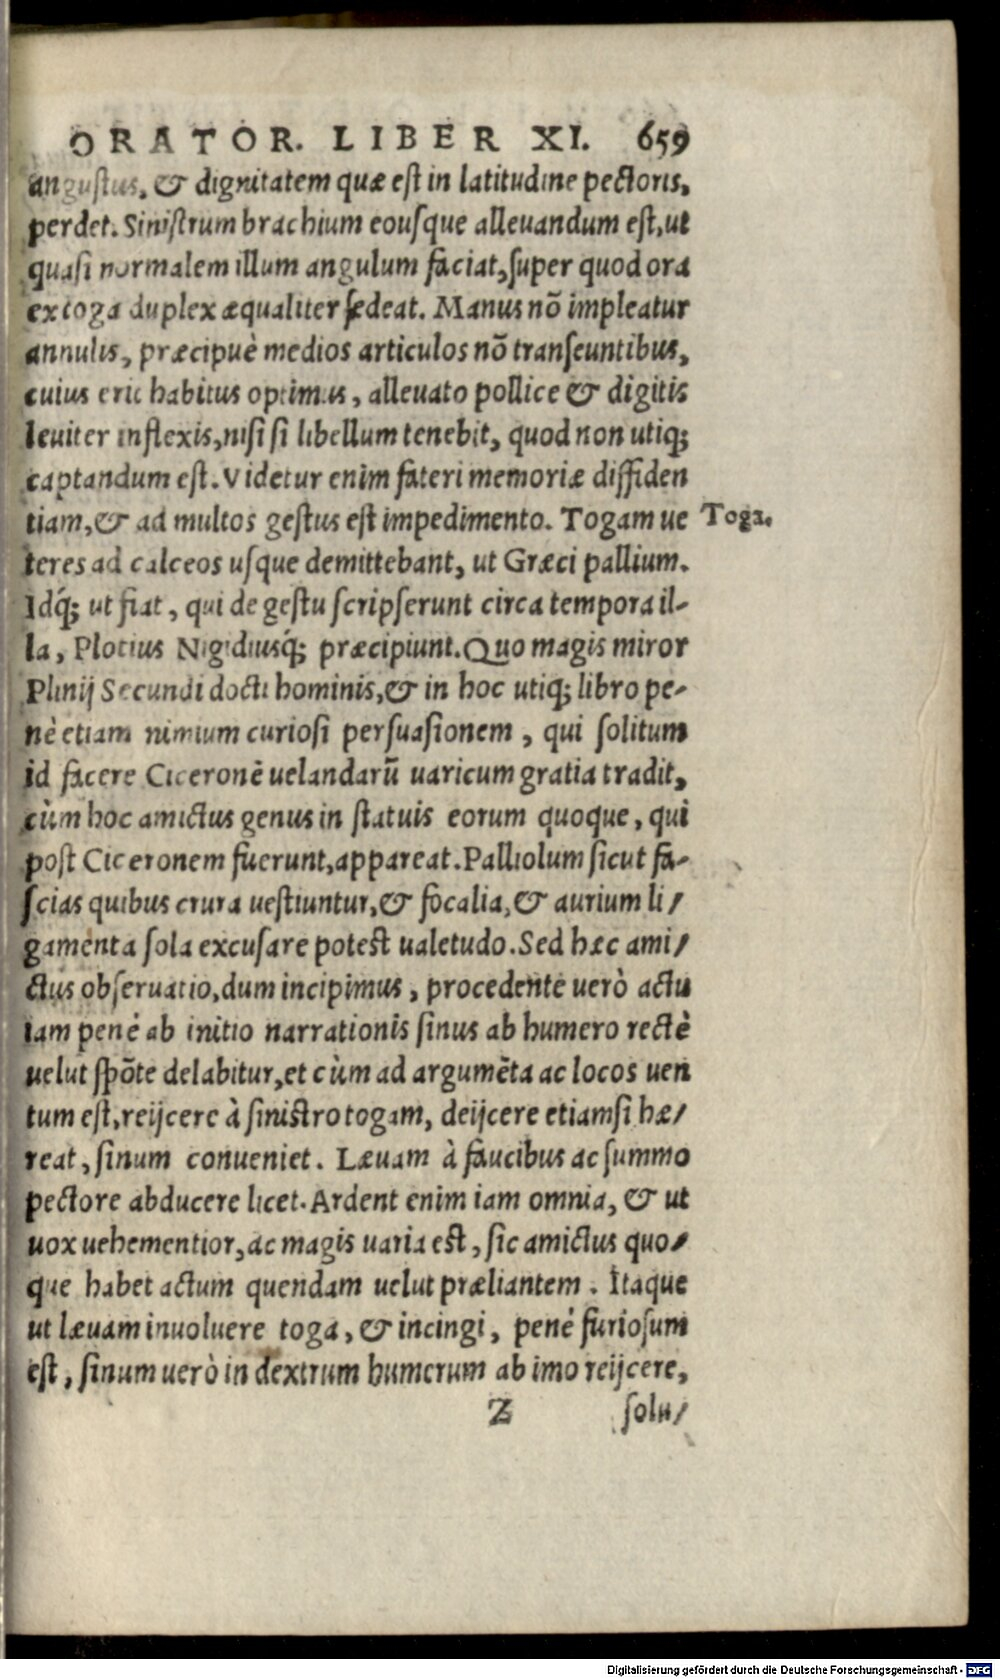 ORATOR. LIBER XI. 659
angustus, & dignitatem quæ est in latitudine pectoris,
perdet. Sinistrum brachium eousque alleuandum est, ut
quasi normalem illum angulum faciat, super quod ora
ex toga duplex æqualiter sedeat. Manus nõ impleatur
annulis, præcipuè medios articulos nõ transeuntibus,
cuius erit habitus optimus, alleuato pollice & digitis
leuiter inflexis, nisi si libellum tenebit, quod non utiq;
captandum est. Videtur enim fateri memoriæ diffiden
tiam, & ad multos gestus est impedimento. Togam ue
Toga.
teres ad calceos usque demittebant, ut Græci pallium.
Idq́; ut fiat, qui de gestu scripserunt circa tempora il-
la, Plotius Nigidiusq́; præcipiunt. Quo magis miror
Plinij Secundi docti hominis, & in hoc utiq; libro pe-
nè etiam nimium curiosi persuasionem, qui solitum
id facere Ciceronẽ uelandarũ uaricum gratia tradit,
cùm hoc amictus genus in statuis eorum quoque, qui
post Ciceronem fuerunt, appareat. Palliolum sicut fa-
scias quibus crura uestiuntur, & focalia, & aurium li/
gamenta sola excusare potest ualetudo. Sed hæc ami/
ctus obseruatio, dum incipimus, procedente uerò actu
iam penè ab initio narrationis sinus ab humero rectè
uelut spõte delabitur, et cùm ad argumẽta ac locos uen
tum est, reijcere à sinistro togam, deijcere etiamsi hæ/
reat, sinum conueniet. Læuam à faucibus ac summo
pectore abducere licet. Ardent enim iam omnia, & ut
uox uehementior, ac magis uaria est, sic amictus quo/
que habet actum quendam uelut præliantem. Itaque
ut læuam inuoluere toga, & incingi, penè furiosum
est, sinum uerò in dextrum humerum ab imo reijcere,
Z solu/
Digitalisierung gefördert durch die Deutsche Forschungsgemeinschaft - DFG